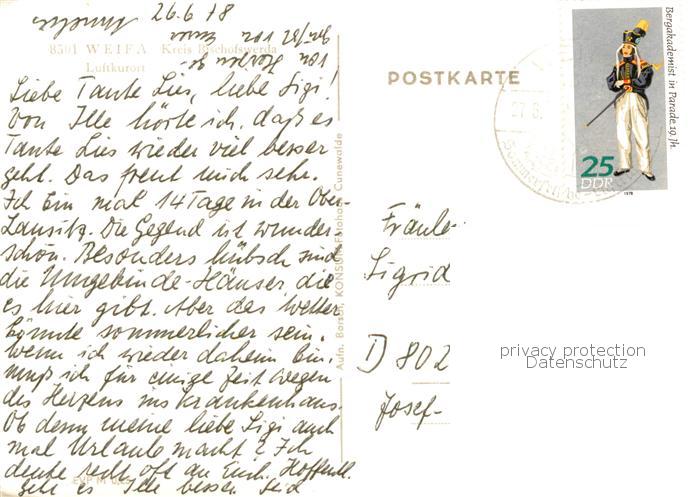 26.6.78
8501 WEIFA Kreis Bischofswerda
Luftkurort
Liebe Tante Lies, liebe Sigi!
Von Ille hörte ich, daß es
Tante Lies wieder viel besser
geht. Das freut mich sehr.
Ich bin mal 14 Tage in der Ober-
Lausitz. Die Gegend ist wunder-
schön. Besonders hübsch sind
die Umgebinde-Häuser, die
es hier gibt. Aber das Wetter
könnte sommerlicher sein.
Wenn ich wieder daheim bin,
muß ich für einige Zeit wegen
des Herzens ins Krankenhaus.
Ob denn meine liebe Sigi auch
mal Urlaub macht? Ich
denke recht oft an Euch. Hoffentl.
geht es Ille besser. Seid
EVP M
Aufn. Borsch, KONSUM-Fotohaus Cunewalde
POSTKARTE
27.6.
Bergakademist in Parade. 19. Jh.
25
DDR
1978
Fräule
Sigrid
D 802
Josef-
privacy protection
Datenschutz